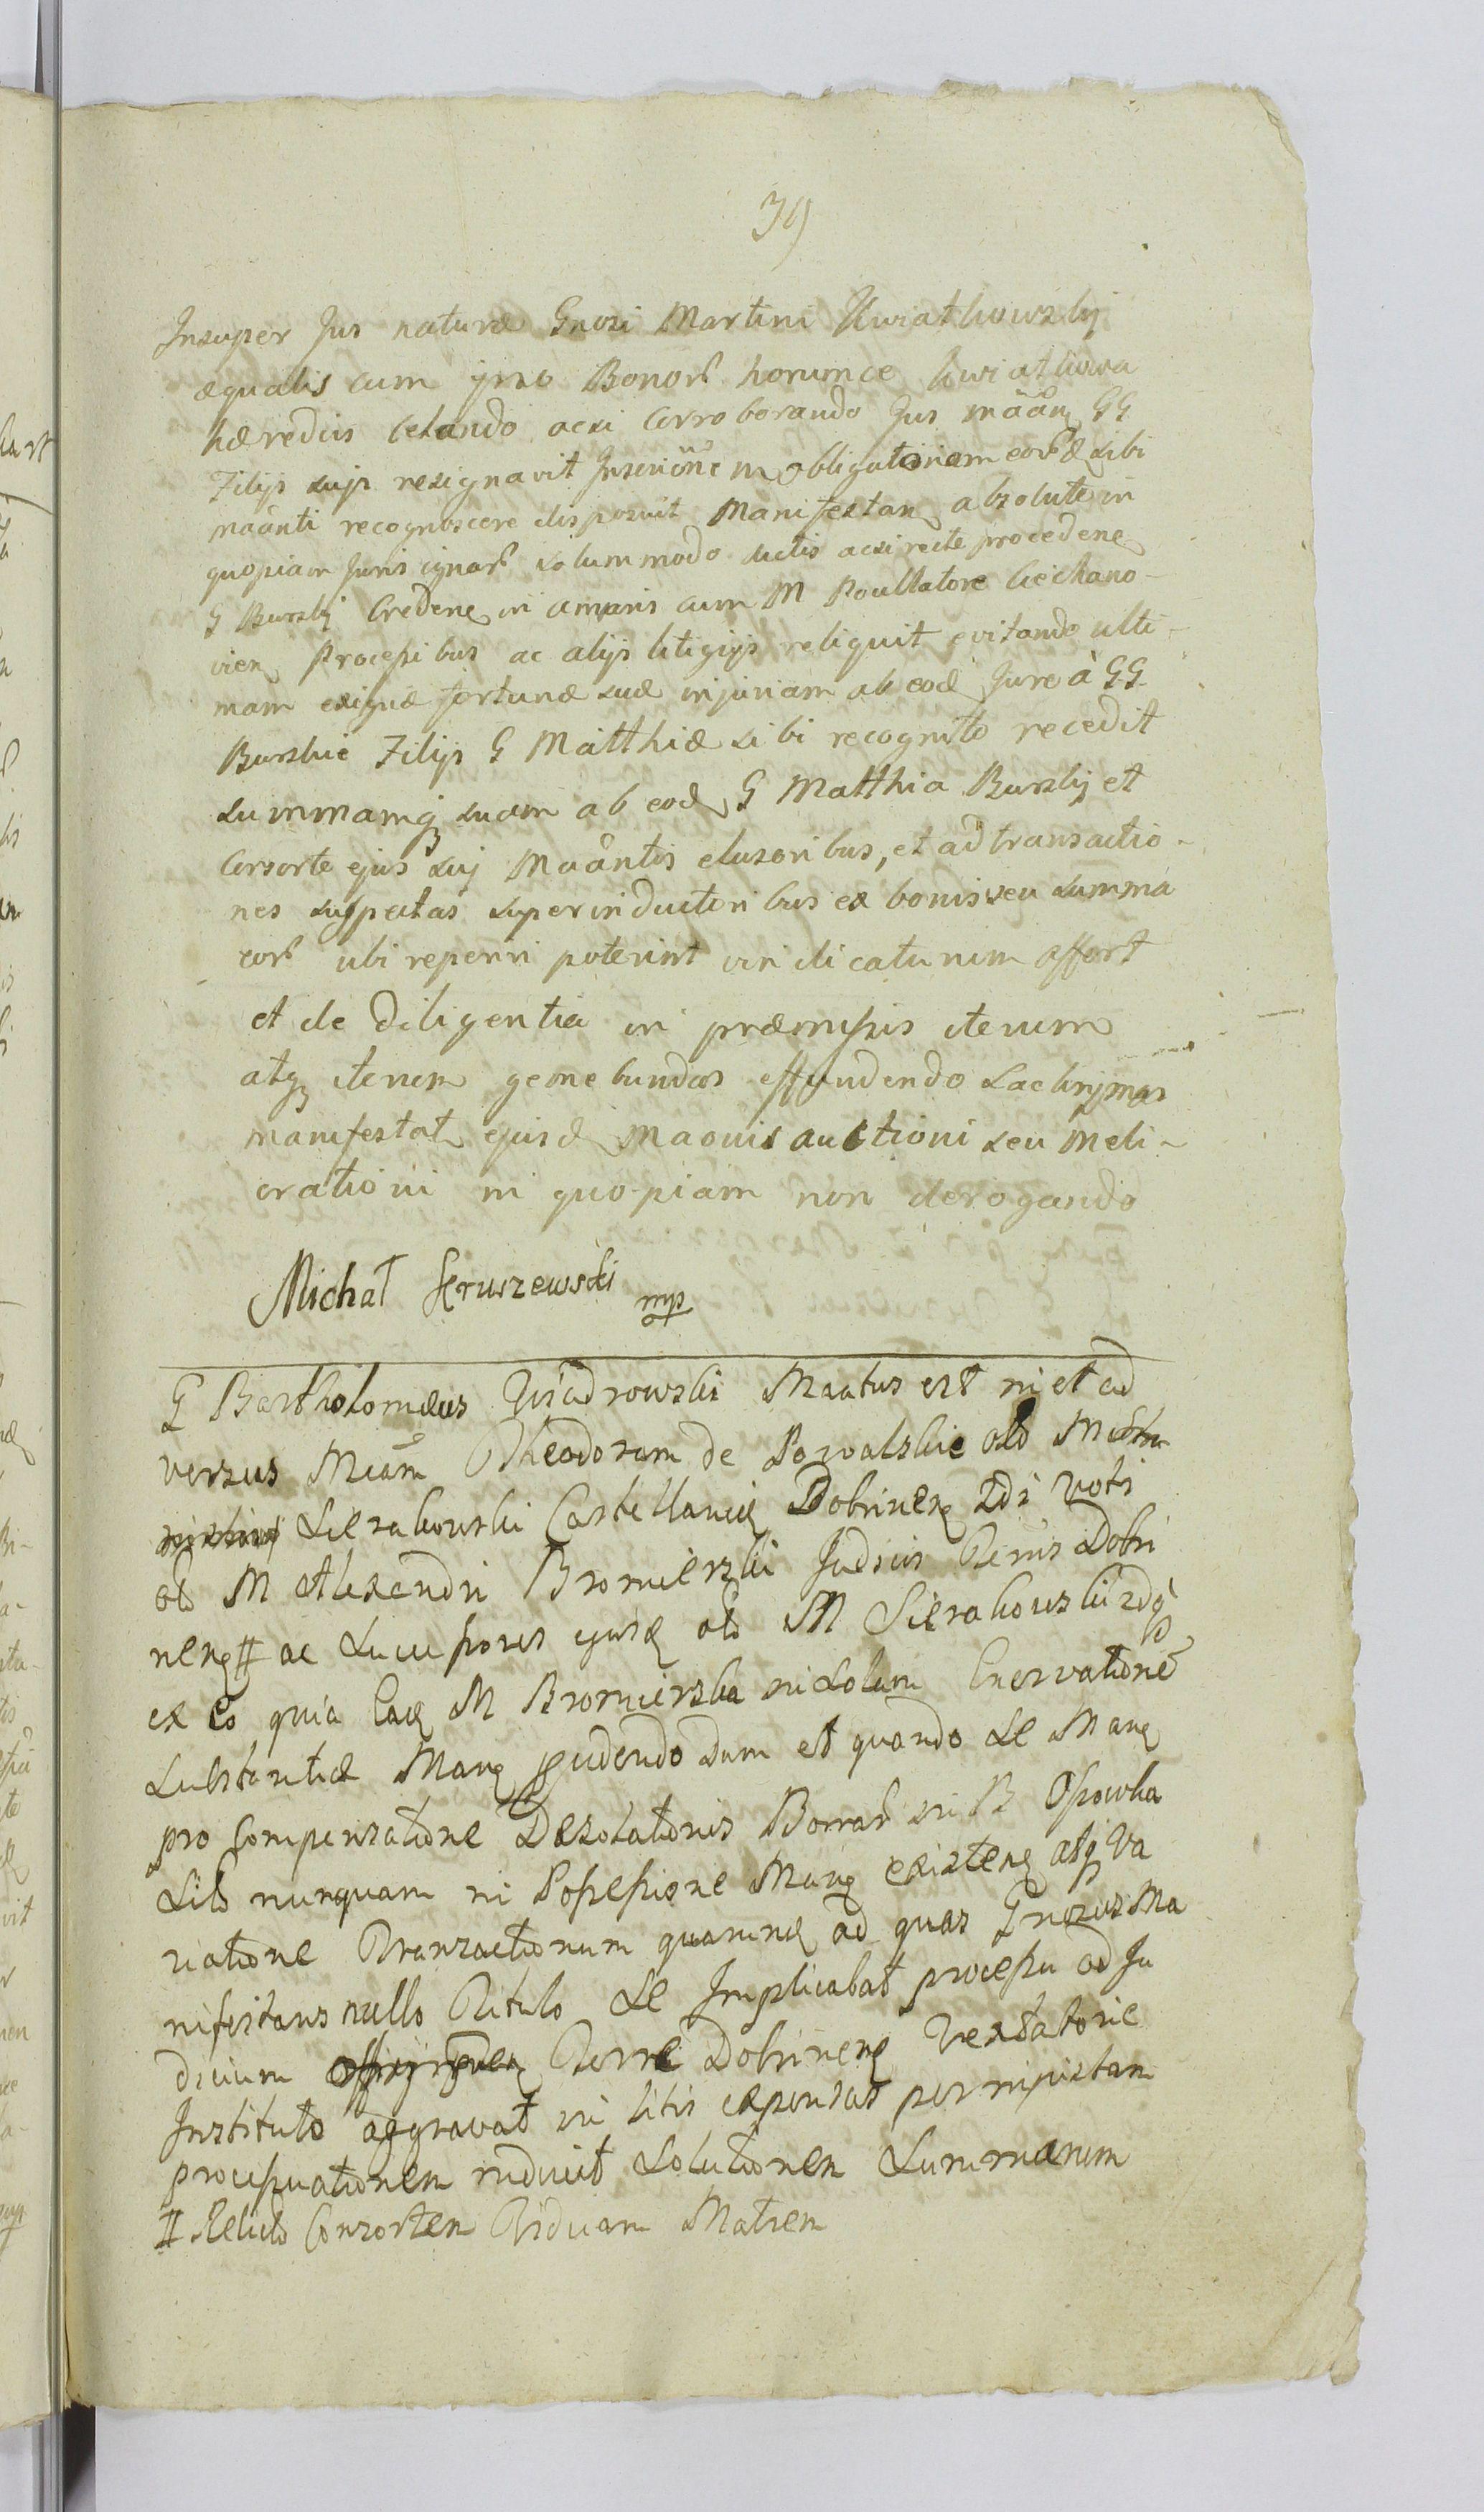 39
Insuper Jus naturæ Gnosi Martini Kwiatkowskij
æqualis cum ipso Bonor horumce Kwiatkowa
hæredis celando acsi Corroborando Jus mãam GG
Filijs suis resignavit Inscriõne m obligatoriam eord sibi
maanti recognoscere disposuit Manifestan absolute in
quopiam Juris ignar solummodo dictis acsi recte procedene
G Burskij Credene in amaris cum M Poullatore Ciechano-
vien Processibus ac alijs litigijs reliquit evitando ulti-
mam exiguæ fortunæ suæ injuriam ab eod Jure à GG
Burskie Filijs G Matthiæ sibi recognito recedit
summamq suam ab eod G Matthia Burskij et
Consorte ejus suj Maantis elusoribus, et ad transactio-
nes suspectas superinductoribus ex bonis seu summa
eor ubi reperiri poterint vindicaturum affert
et de diligentia in præmissis iterum
atq iterum gemebundas effundendo Lachrymas
manifestat ejusd Maonis auctioni seu meli-
orationi in quo-piam non derogando
Michał Kruszewski mp
G Bartholomæus Wiadrowski Maatus est in et ad
versus Mcam Theodoram de Powalskie olo M
Sierakowski Castellani Dobrinen 2di Voti
olo M Alexandri Bromierski Judicis Terris Dobri
nen # ac Successores ejusd olo M Sierakowski 2do
ex Eo quia Ead M Bromierska in Solam Enervatione
Substantiæ Man studendo Dum et quando Se Man
pro Compensatione Desolationis Bonnar in B Ossowka
Sibi nunquam in Possessione Man existen atq Va
riatione Transactionum quarum ad quas Gnosus Ma
nifestans nullo Titulo Se Implicabat processu ad Ju
dicium Terre Dobrinen Vexatorie
Instituto aggravat in litis expensas per injustam
processuationem inducit Solutionem Summarum
# Relicto Consortem Viduam Matrem